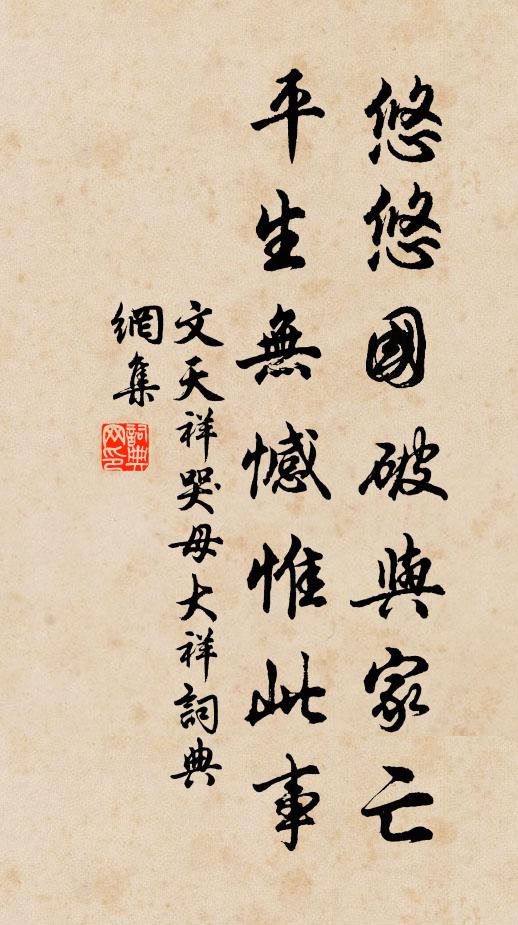 悠悠國破與家亡
平生無憾惟此事
文天祥哭母大祥詞典
網集
詞典
网印